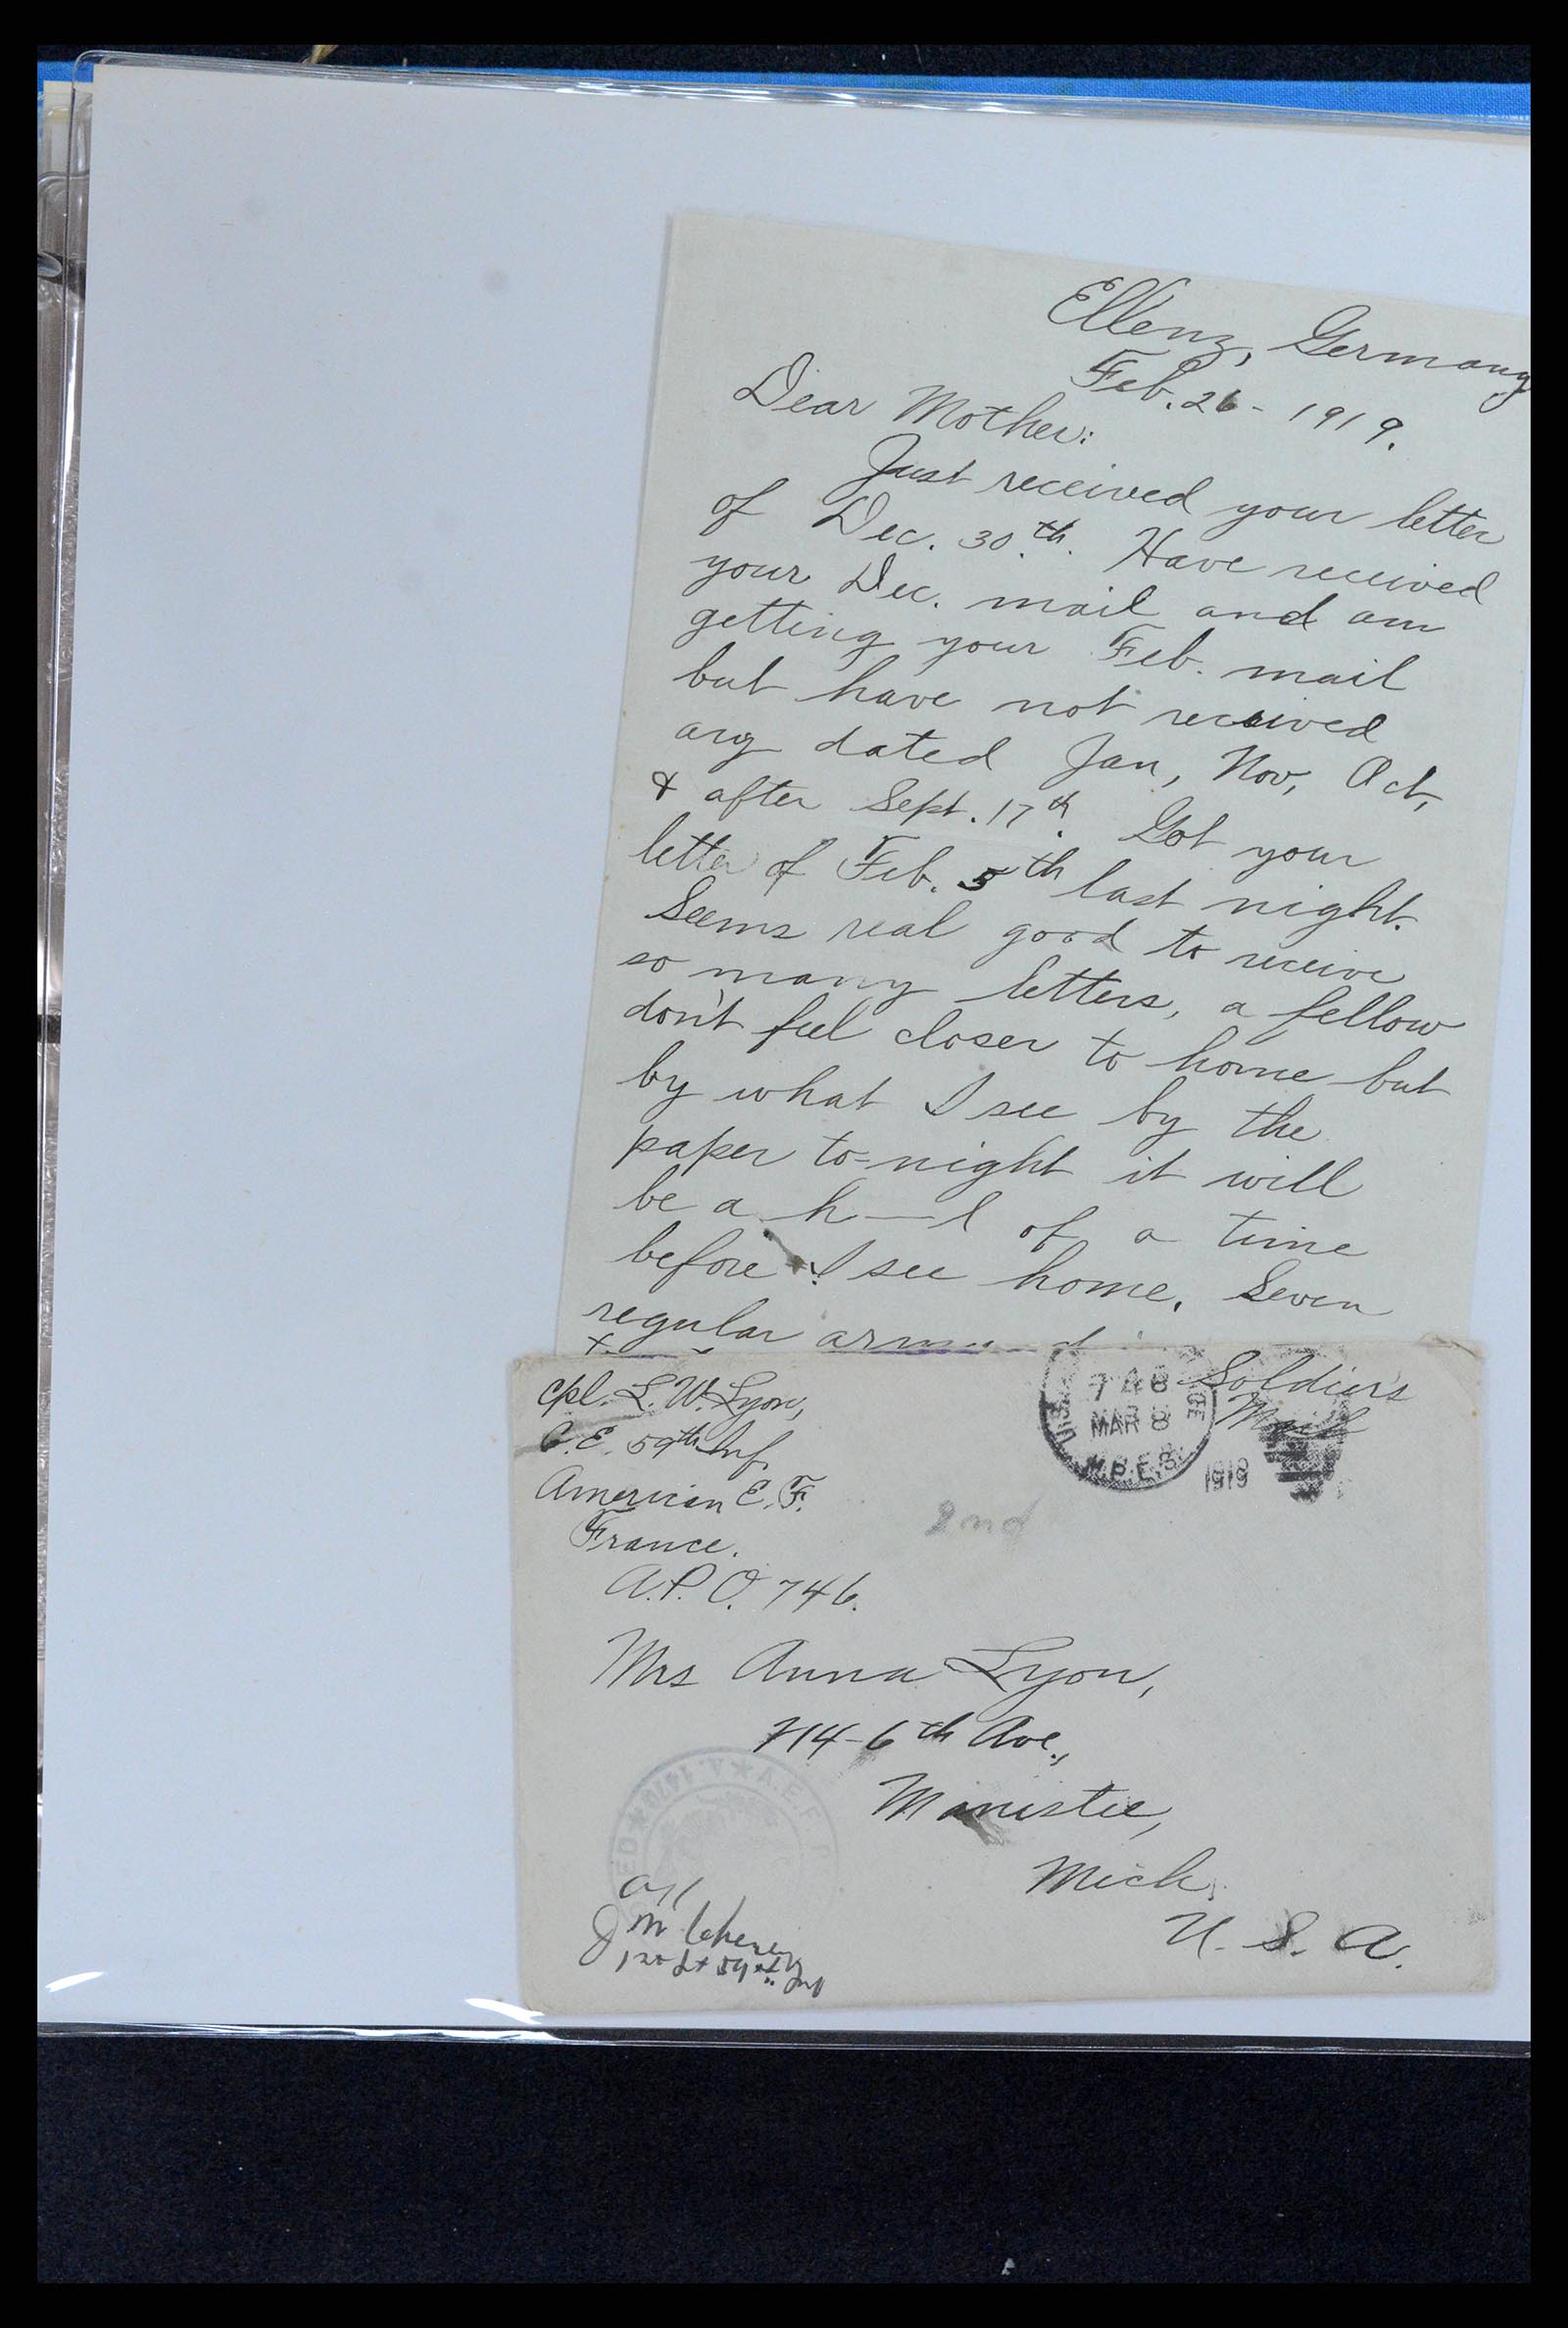 Ellenz, Germany
Feb. 26 - 1919.
Dear Mother:
Just received your letter
of Dec. 30.th. Have received
your Dec. mail and am
getting your Feb. mail
but have not received
any dated Jan, Nov, Oct,
& after Sept. 17th. Got your
letter of Feb. 5th last night.
Seems real good to receive
so many letters, a fellow
don't feel closer to home but
by what I see by the
paper to-night it will
be a h—l of a time
before I see home. Seven
regular
Cpl. L. W. Lyon,
C.E. 59th Inf.
American E. F.
France.
A.P.O. 746.
Soldiers
Mail
746
MAR 8
M.P.E.S.
1919
2nd
Mrs Anna Lyon,
714-6th Ave.,
Manistee,
Mich.
U. S. A.
A.1470 ★ A.E.F.
OK
J M
1st Lt 59th Inf